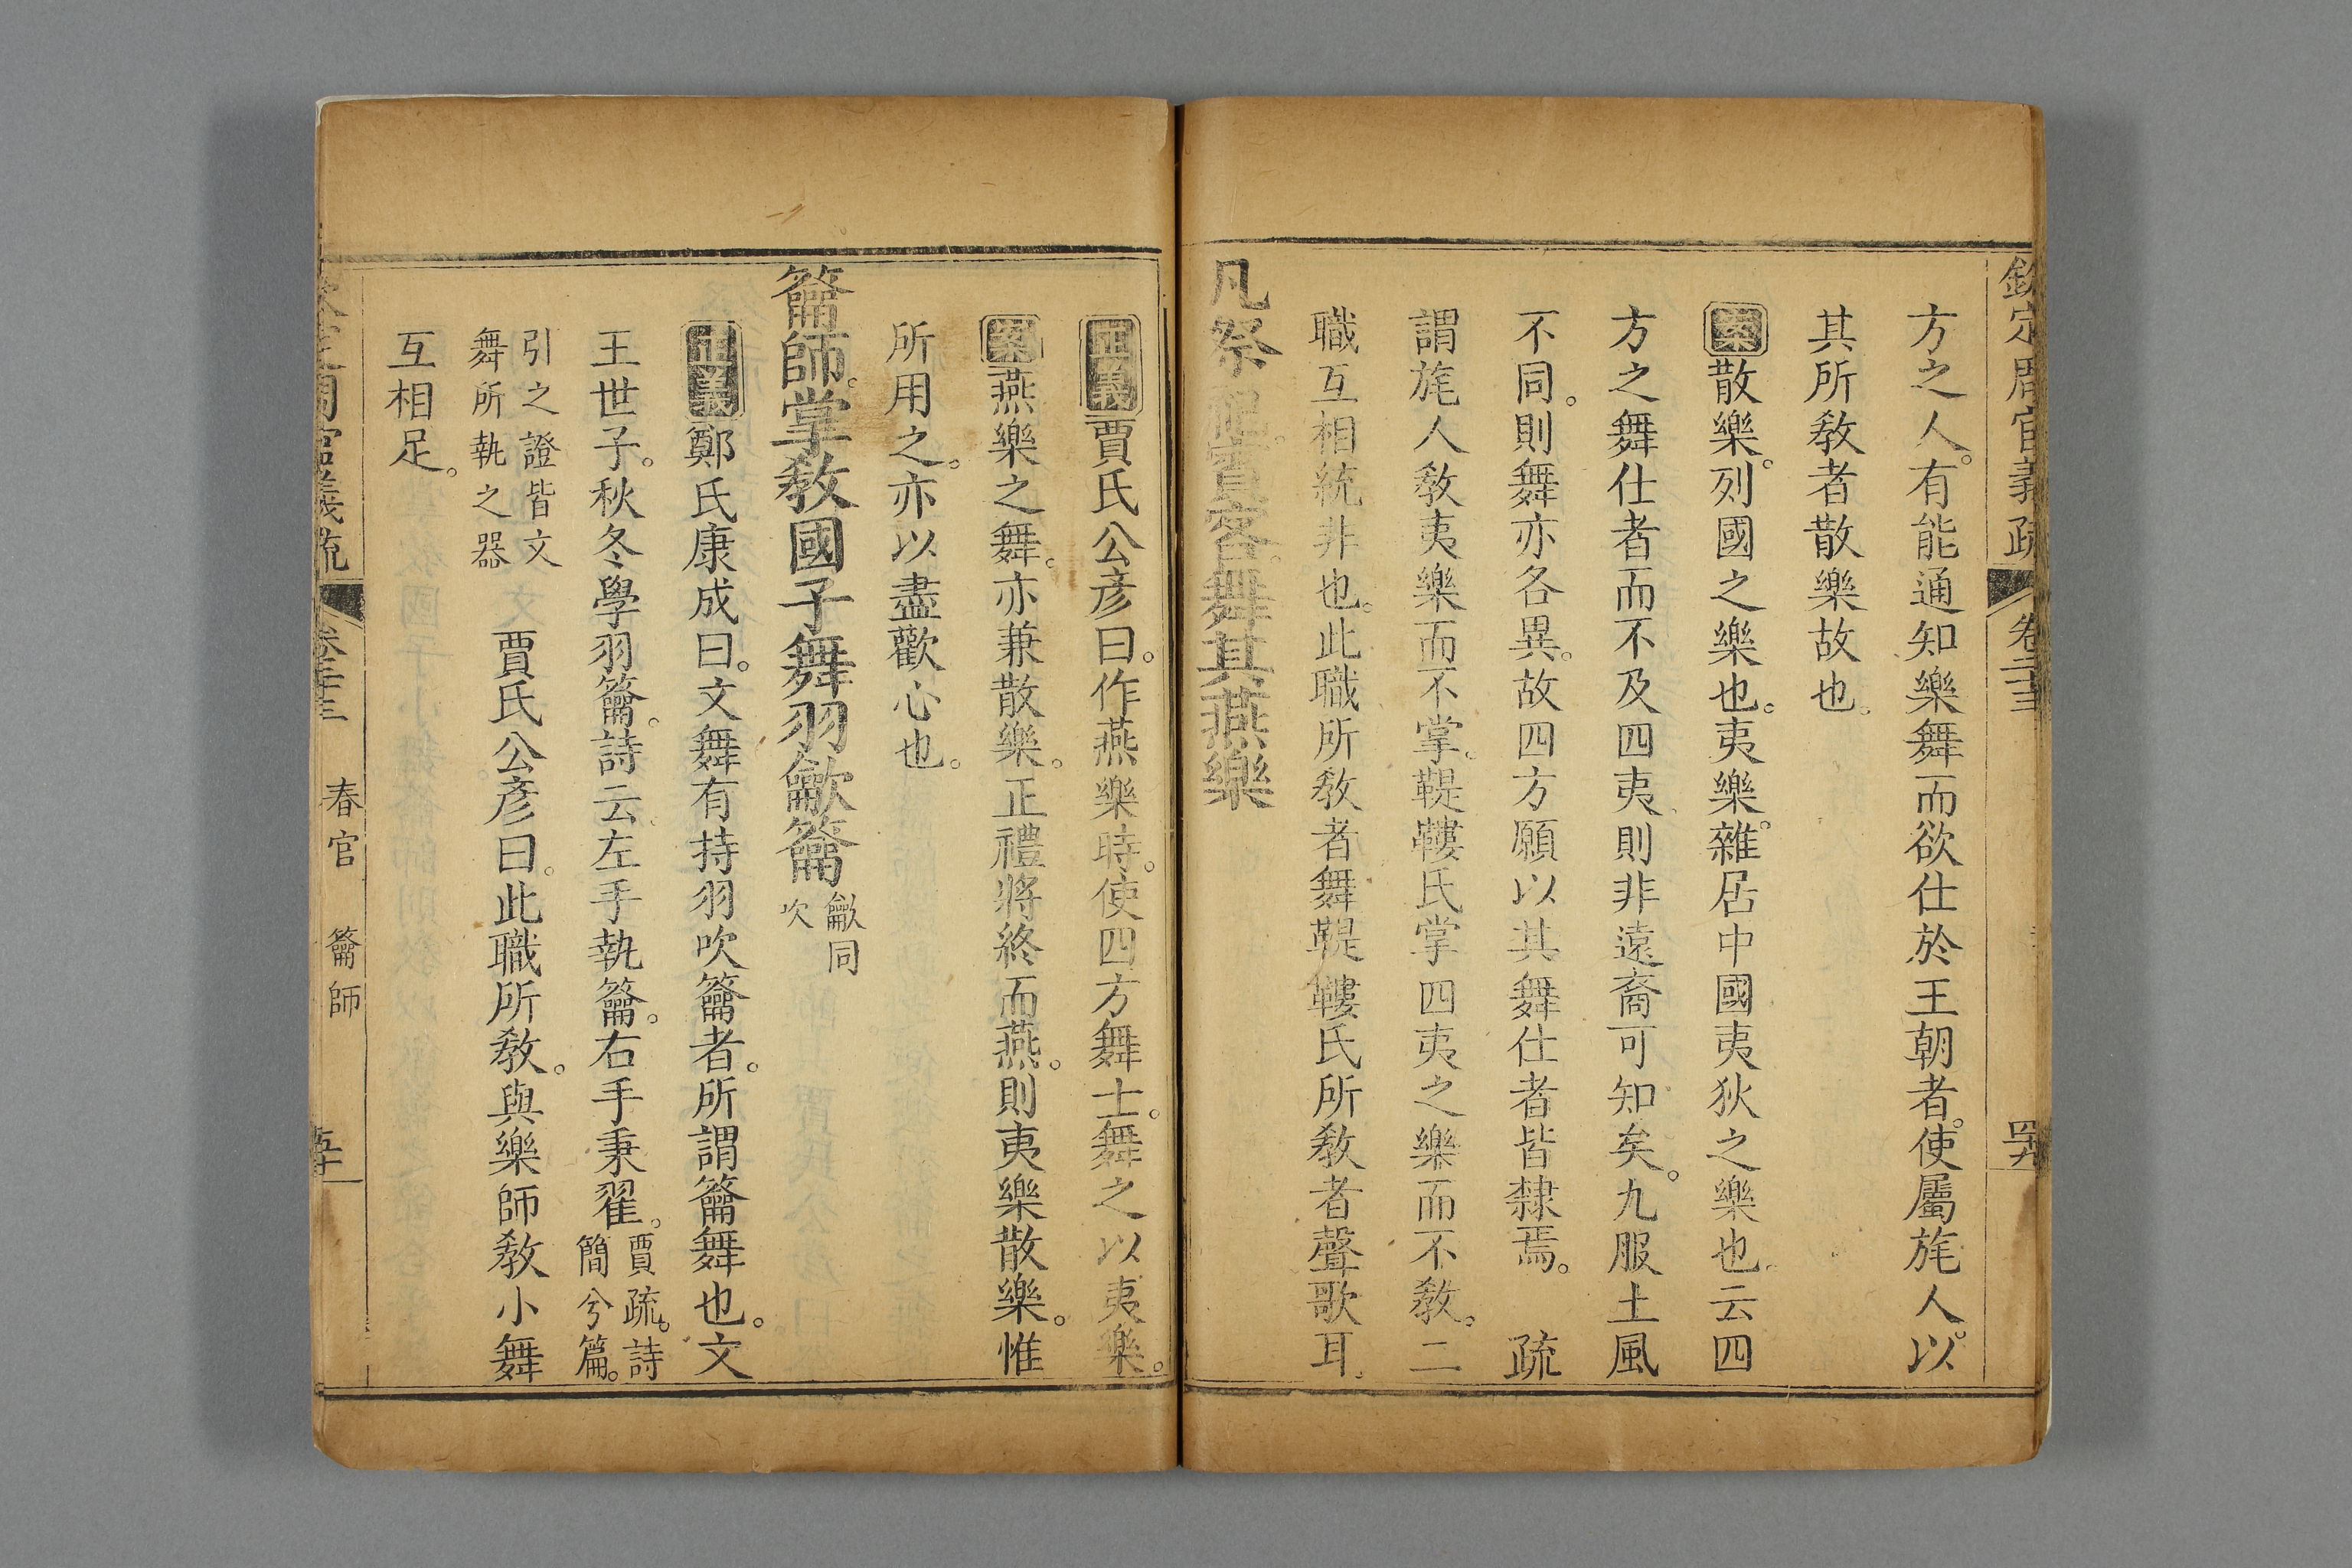 欽定周官義疏 卷三十三 四九
方之人。有能通知樂舞而欲仕於王朝者。使屬旄人。以
其所敎者散樂故也。
案散樂。列國之樂也。夷樂。雜居中國夷狄之樂也。云四
方之舞仕者而不及四夷、則非遠裔可知矣。九服土風
不同。則舞亦各異。故四方願以其舞仕者皆隸焉。 疏
謂旄人敎夷樂而不掌。鞮鞻氏掌四夷之樂而不敎。二
職互相統非也。此職所敎者舞鞮鞻氏所敎者聲歌耳。
凡祭祀。賓客。舞其燕樂
正義賈氏公彦曰。作燕樂時。使四方舞士。舞之以夷樂。
案燕樂之舞。亦兼散樂。正禮將終而燕。則夷樂散樂。惟
所用之。亦以盡歡心也。
籥師。掌敎國子舞羽龡籥
龡同
吹
正義鄭氏康成曰。文舞有持羽吹籥者。所謂籥舞也。文
王世子。秋冬學羽籥。詩云、左手執籥。右手秉翟。
賈疏。詩
簡兮篇。
引之證皆文
舞所執之器
賈氏公彦曰。此職所敎。與樂師敎小舞
互相足。
欽定周官義疏 卷三十三 春官 籥師 五十